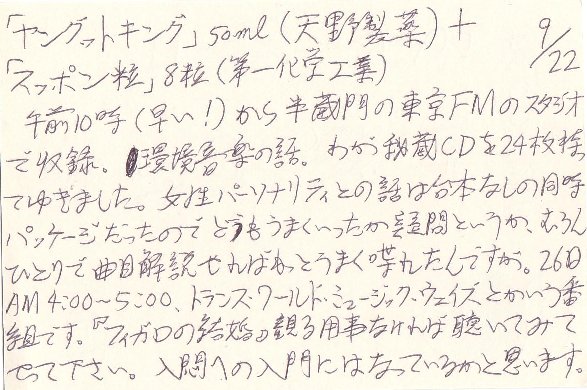 「ヤングットキング」50ml(天野製薬)+
9/22
「スッポン粒」8粒(第一化学工業)
午前10時(早い!)から半蔵門の東京FMのスタジオ
で収録。環境音楽の話。わが秘蔵CDを24枚持っ
てゆきました。女性パーソナリティとの話は台本なしの同時
パッケージだったのでどうもうまくいったか疑問というか、むろん
ひとりで曲目解説やればもっとうまく喋れたんですが。26日
AM4:00〜5:00、トランス・ワールド・ミュージック・ウェイズとかいう番
組です。『フィガロの結婚』観る用事なければ聴いてみて
やって下さい。入間への入門にはなっているかと思います。